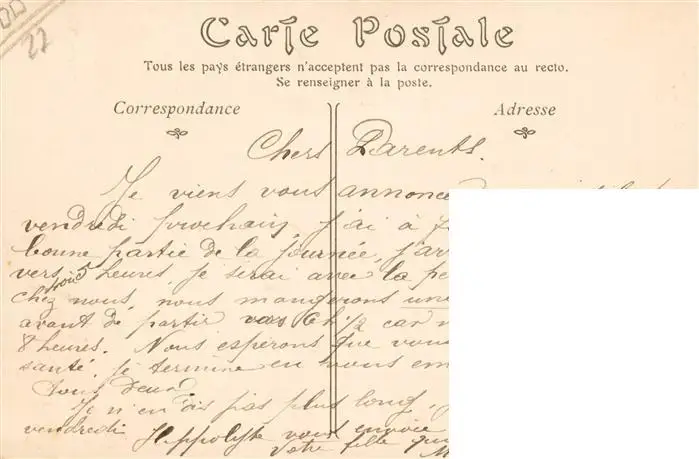 27
Carte Postale
Tous les pays étrangers n'acceptent pas la correspondance au recto.
Se renseigner à la poste.
Correspondance
Adresse
Chers Parents.
Je viens vous annonce
vendredi prochain, j'ai à
bonne partie de la journée, j'arr
vers 5 heures, je serai avec la pe
chez nous, nous mangerons une
avant de partir vers 6h 1/2 car
8 heures. Nous espérons que vous
santé, je termine en vous em
tous deux.
Je n'en dis pas plus long,
vendredi Hippolyte vous envoie
Votre fille qui